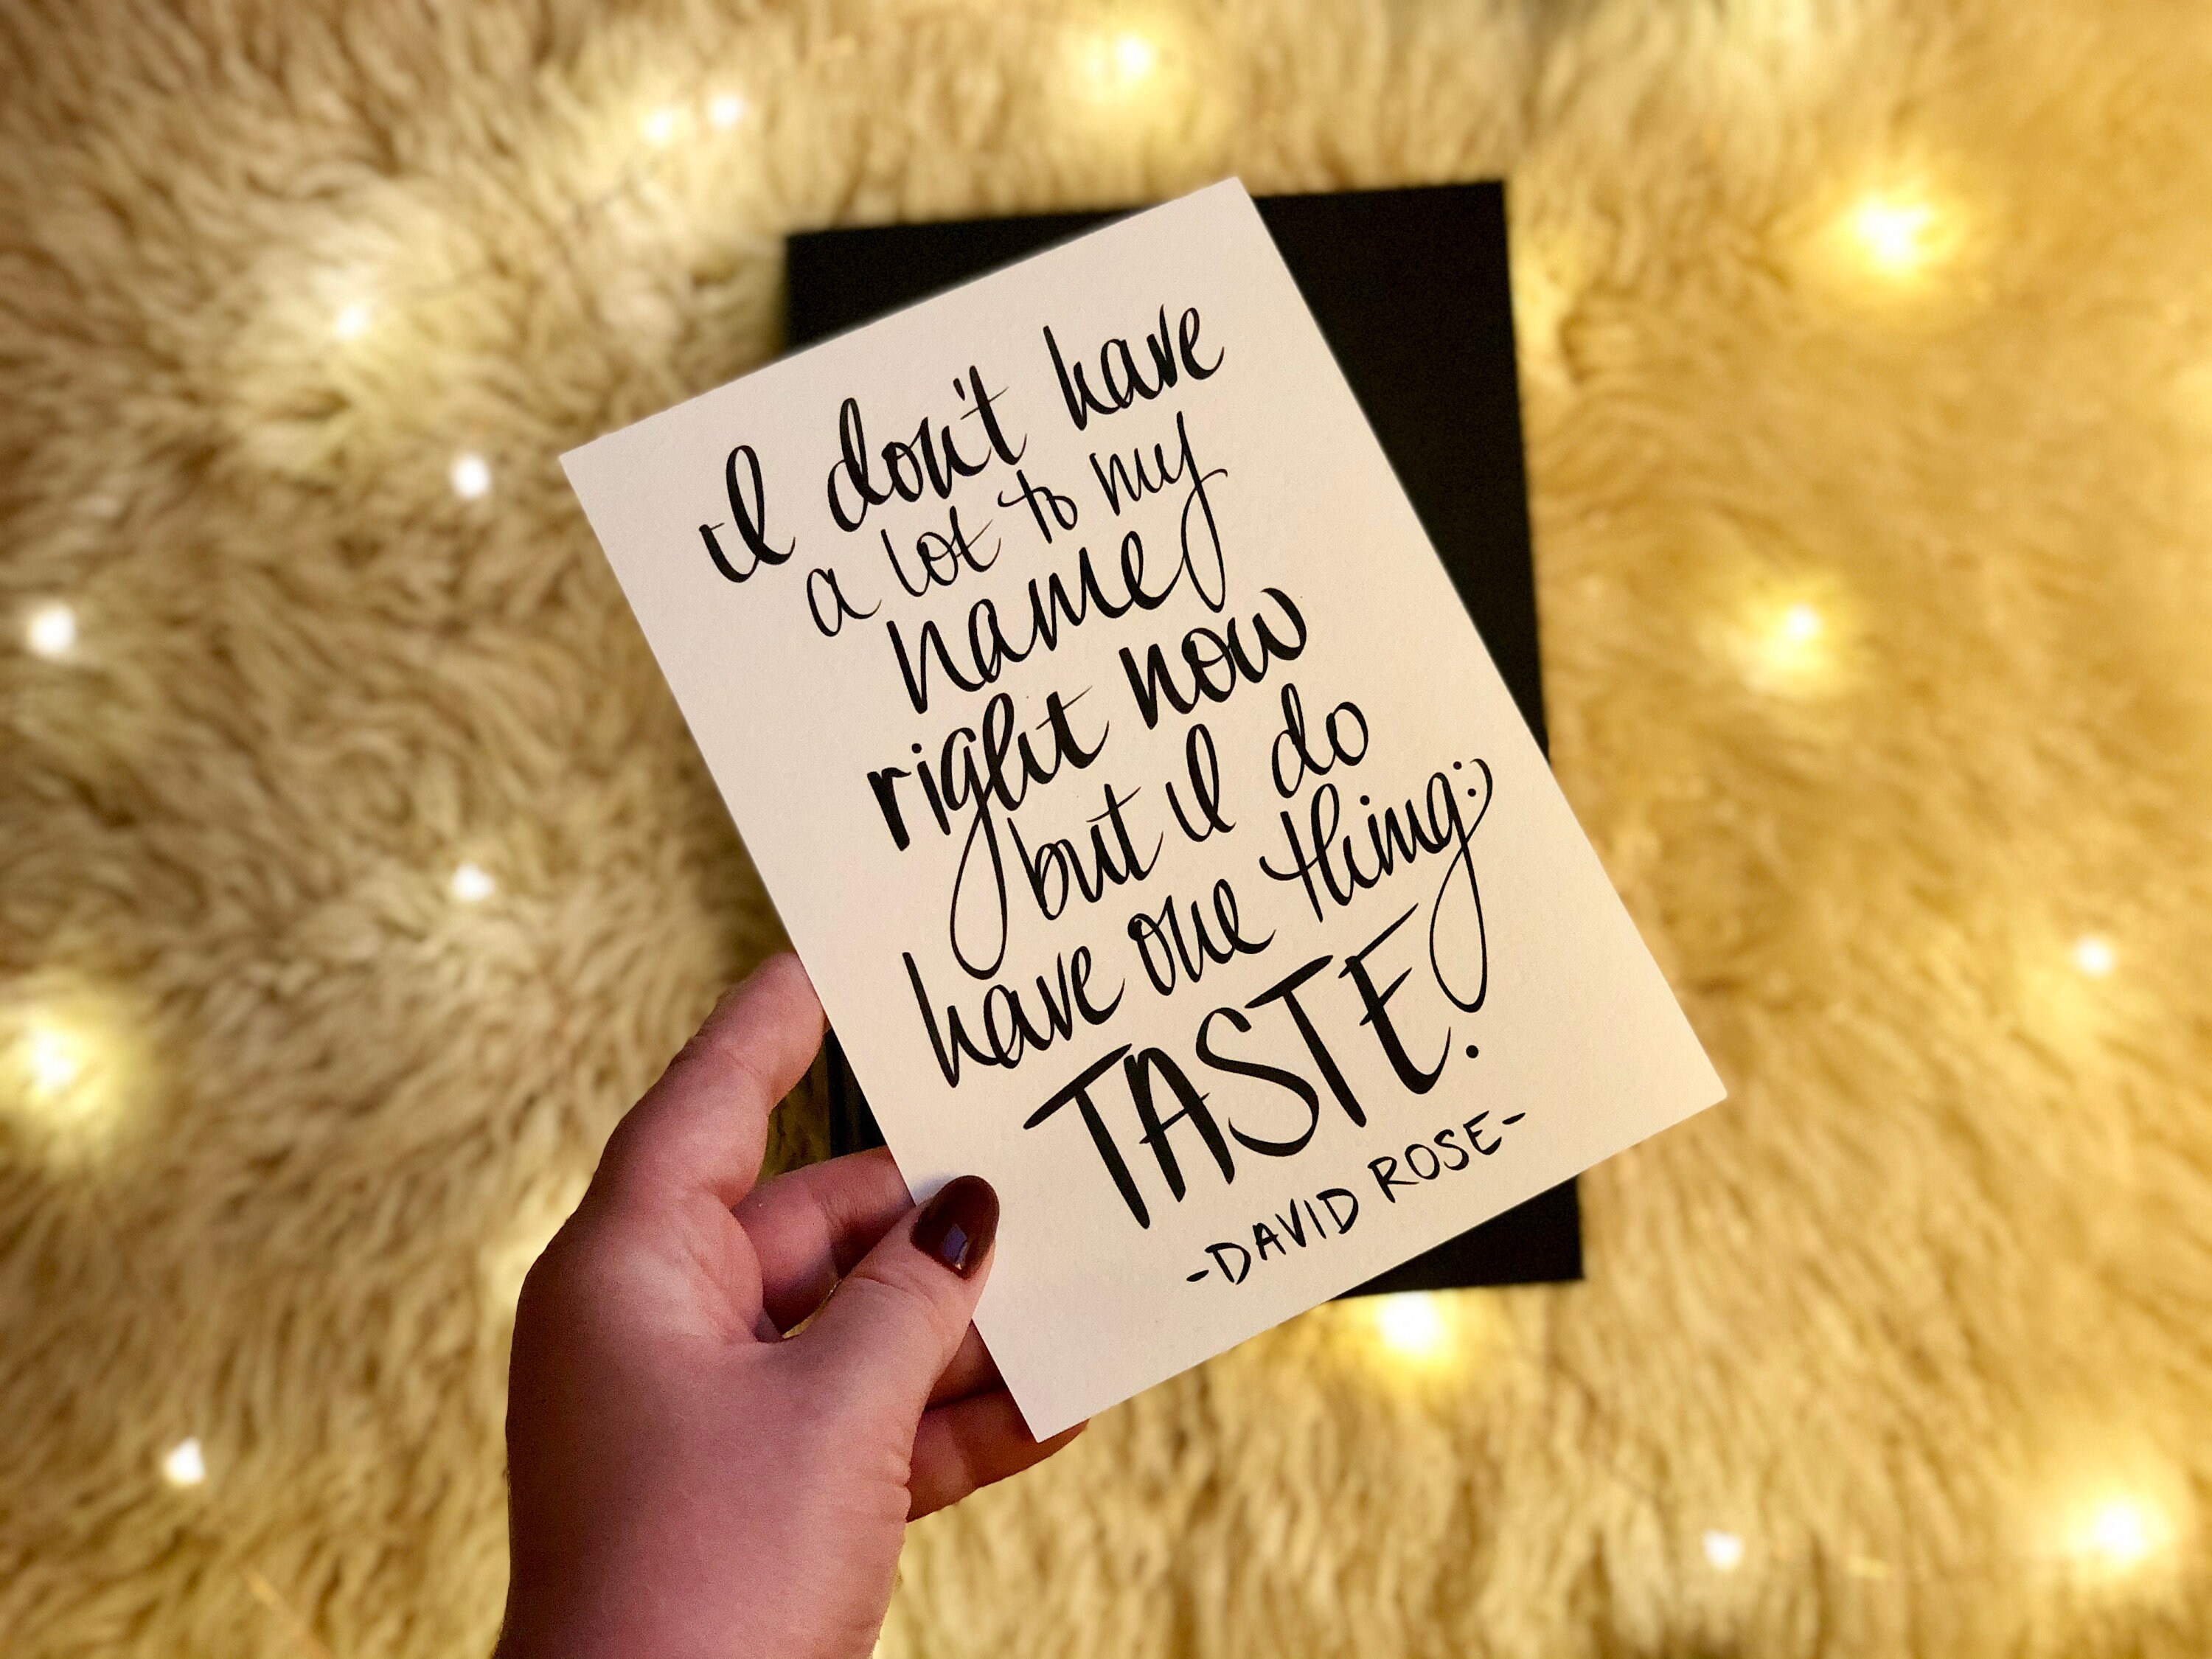 I don't have
a lot to my
name
right now
but I do
have one thing:
TASTE.
-DAVID ROSE-